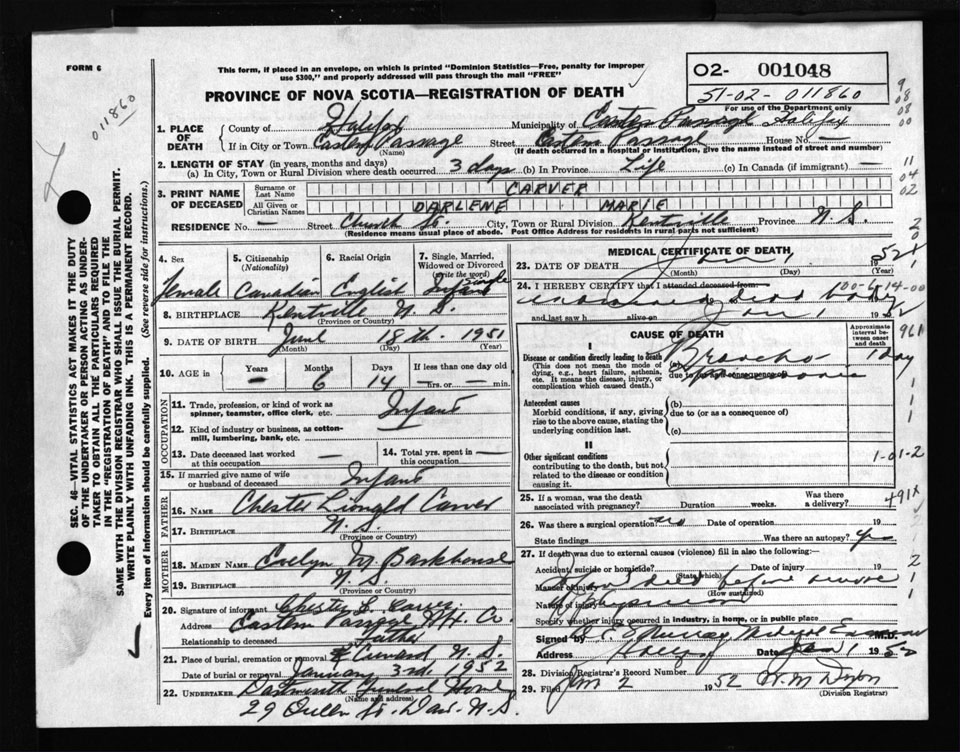 FORM 6
This form, if placed in an envelope, on which is printed "Dominion Statistics—Free, penalty for improper use $300," and properly addressed will pass through the mail "FREE"
PROVINCE OF NOVA SCOTIA—REGISTRATION OF DEATH
02- 001048
51-02-011860
For use of the Department only
011860
1. PLACE OF DEATH
County of Halifax Municipality of Eastern Passage Halifax
If in City or Town Eastern Passage Street Eastern Passage House No. —
(Name) (If death occurred in a hospital or institution, give the name instead of street and number)
2. LENGTH OF STAY (in years, months and days)
(a) In City, Town or Rural Division where death occurred 3 days (b) In Province Life (c) In Canada (if immigrant) —
3. PRINT NAME OF DECEASED
Surname or Last Name CARVER
All Given or Christian Names DARLENE MARIE
RESIDENCE No. — Street Church St. City, Town or Rural Division Kentville Province N.S.
(Residence means usual place of abode. Post Office Address for residents in rural parts not sufficient)
4. Sex Female
5. Citizenship (Nationality) Canadian
6. Racial Origin English
7. Single, Married, Widowed or Divorced (write the word) Single Infant
8. BIRTHPLACE Kentville N.S.
(Province or Country)
9. DATE OF BIRTH June 18th. 1951
(Month) (Day) (Year)
10. AGE in Years — Months 6 Days 14 If less than one day old — hrs. or — min.
OCCUPATION
11. Trade, profession, or kind of work as spinner, teamster, office clerk, etc. Infant
12. Kind of industry or business, as cotton-mill, lumbering, bank, etc.
13. Date deceased last worked at this occupation —
14. Total yrs. spent in this occupation —
15. If married give name of wife or husband of deceased Infant
FATHER
16. NAME Chester Carver
17. BIRTHPLACE N.S.
(Province or Country)
MOTHER
18. MAIDEN NAME Evelyn M. Barkhouse
19. BIRTHPLACE N.S.
(Province or Country)
20. Signature of informant Chester L. Carver
Address Eastern Passage Hfx. Co.
Relationship to deceased Father
21. Place of burial, cremation or removal N.S.
Date of burial or removal January 3rd. 1952
22. UNDERTAKER Dartmouth Funeral Home
(Name and address)
29 Queen St. Dart. N.S.
MEDICAL CERTIFICATE OF DEATH
23. DATE OF DEATH Jan 1 52
(Month) (Day) (Year)
24. I HEREBY CERTIFY that I attended deceased from
examined dead body
and last saw h alive on Jan 1 1952
CAUSE OF DEATH
Approximate interval between onset and death
I
Disease or condition directly leading to death
(This does not mean the mode of dying, e.g., heart failure, asthenia, etc. It means the disease, injury, or complication which caused death.)
(a) Broncho pneumonia 1 day
due to (or as a consequence of)
Antecedent causes
Morbid conditions, if any, giving rise to the above cause, stating the underlying condition last.
(b)
due to (or as a consequence of)
(c)
II
Other significant conditions
contributing to the death, but not related to the disease or condition causing it.
1-01-2
25. If a woman, was the death associated with pregnancy? Duration weeks. Was there a delivery?
491X
26. Was there a surgical operation? no Date of operation 19
State findings Was there an autopsy? yes
27. If death was due to external causes (violence) fill in also the following:—
Accident, suicide or homicide? (State which) Date of injury 19
Manner of injury died before
(How sustained)
Nature of injury
Specify whether injury occurred in industry, in home, or in public place
Signed by Murray Medical Examiner M.D.
Address Halifax Date Jan 1 1952
28. Division Registrar's Record Number
29. Filed Jan 2 1952 W. M. Dixon
(Division Registrar)
SEC. 46—VITAL STATISTICS ACT MAKES IT THE DUTY OF THE UNDERTAKER OR PERSON ACTING AS UNDERTAKER TO OBTAIN ALL THE PARTICULARS REQUIRED IN THE "REGISTRATION OF DEATH" AND TO FILE THE SAME WITH THE DIVISION REGISTRAR WHO SHALL ISSUE THE BURIAL PERMIT.
WRITE PLAINLY WITH UNFADING INK. THIS IS A PERMANENT RECORD.
Every item of information should be carefully supplied. (See reverse side for instructions.)